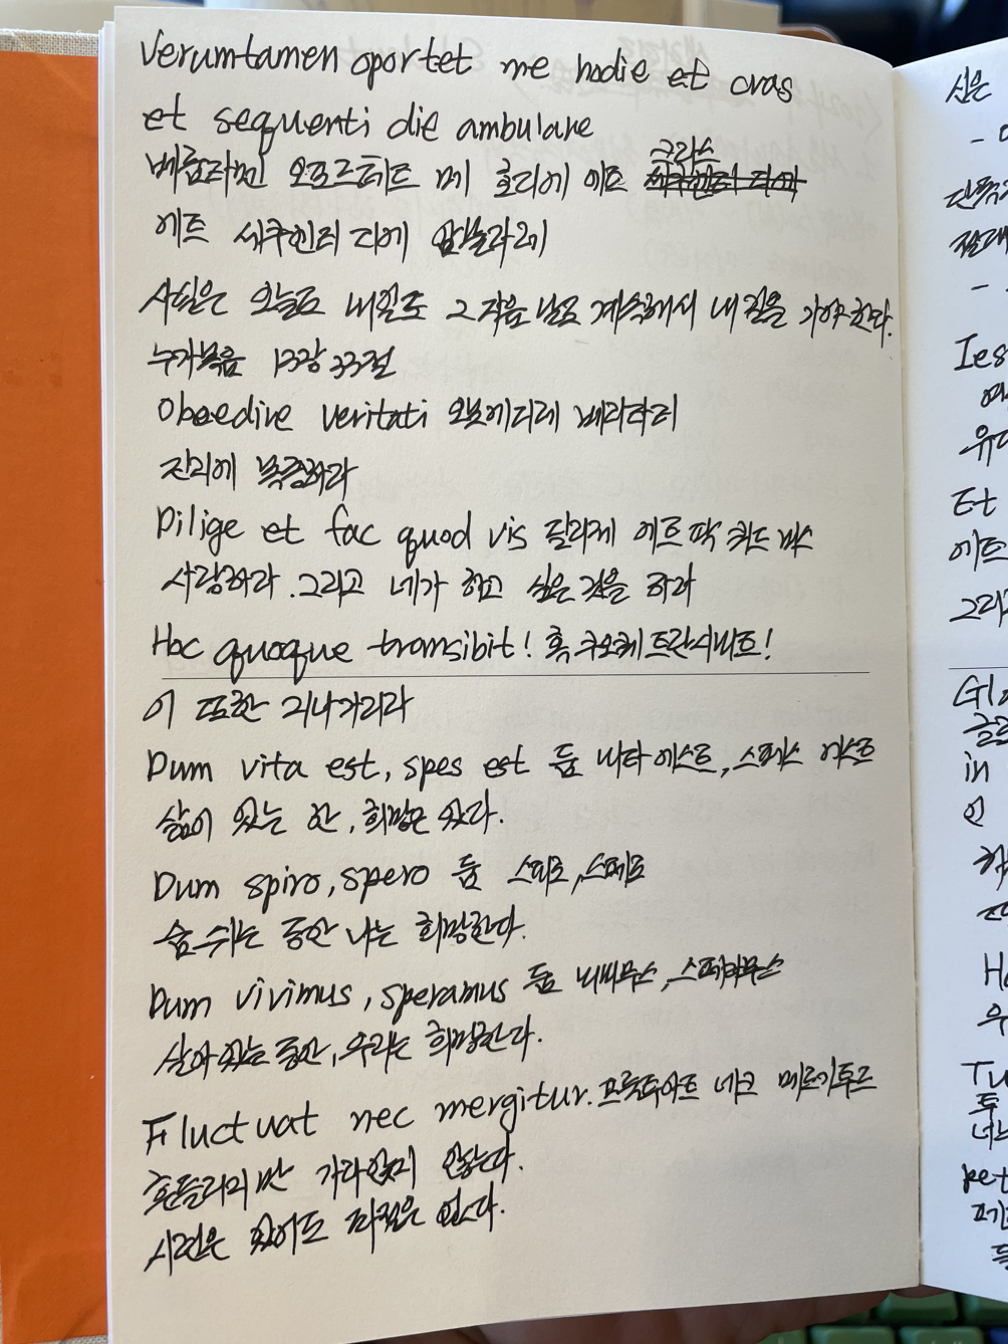 Verumtamen oportet me hodie et cras
et sequenti die ambulare
베룸타멘 오포르테트 메 호디에 에트 크라스
에트 세쿠엔티 디에 암불라레
사실은 오늘도 내일도 그 다음 날도 계속해서 내 길을 가야 한다.
누가복음 13장 33절
Oboedire veritati 오보에디레 베리타티
진리에 복종하라
Dilige et fac quod vis 딜리제 에트 팍 쿼드 비스
사랑하라. 그리고 네가 하고 싶은 것을 하라
Hoc quoque transibit! 혹 쿠오퀘 트란시비트!
이 또한 지나가리라
Dum vita est, spes est 둠 비타 에스트, 스페스 에스트
삶이 있는 한, 희망은 있다.
Dum spiro, spero 둠 스피로, 스페로
숨 쉬는 동안 나는 희망한다.
Dum vivimus, speramus 둠 비비무스, 스페라무스
살아 있는 동안, 우리는 희망한다.
Fluctuat nec mergitur. 프룩투아트 네크 메르기투르
흔들리지만 가라앉지 않는다.
시련은 있어도 좌절은 없다.
신은
Ies
유다
Et
에트
그리고
Gl
글로
in
인
우
Tu
투